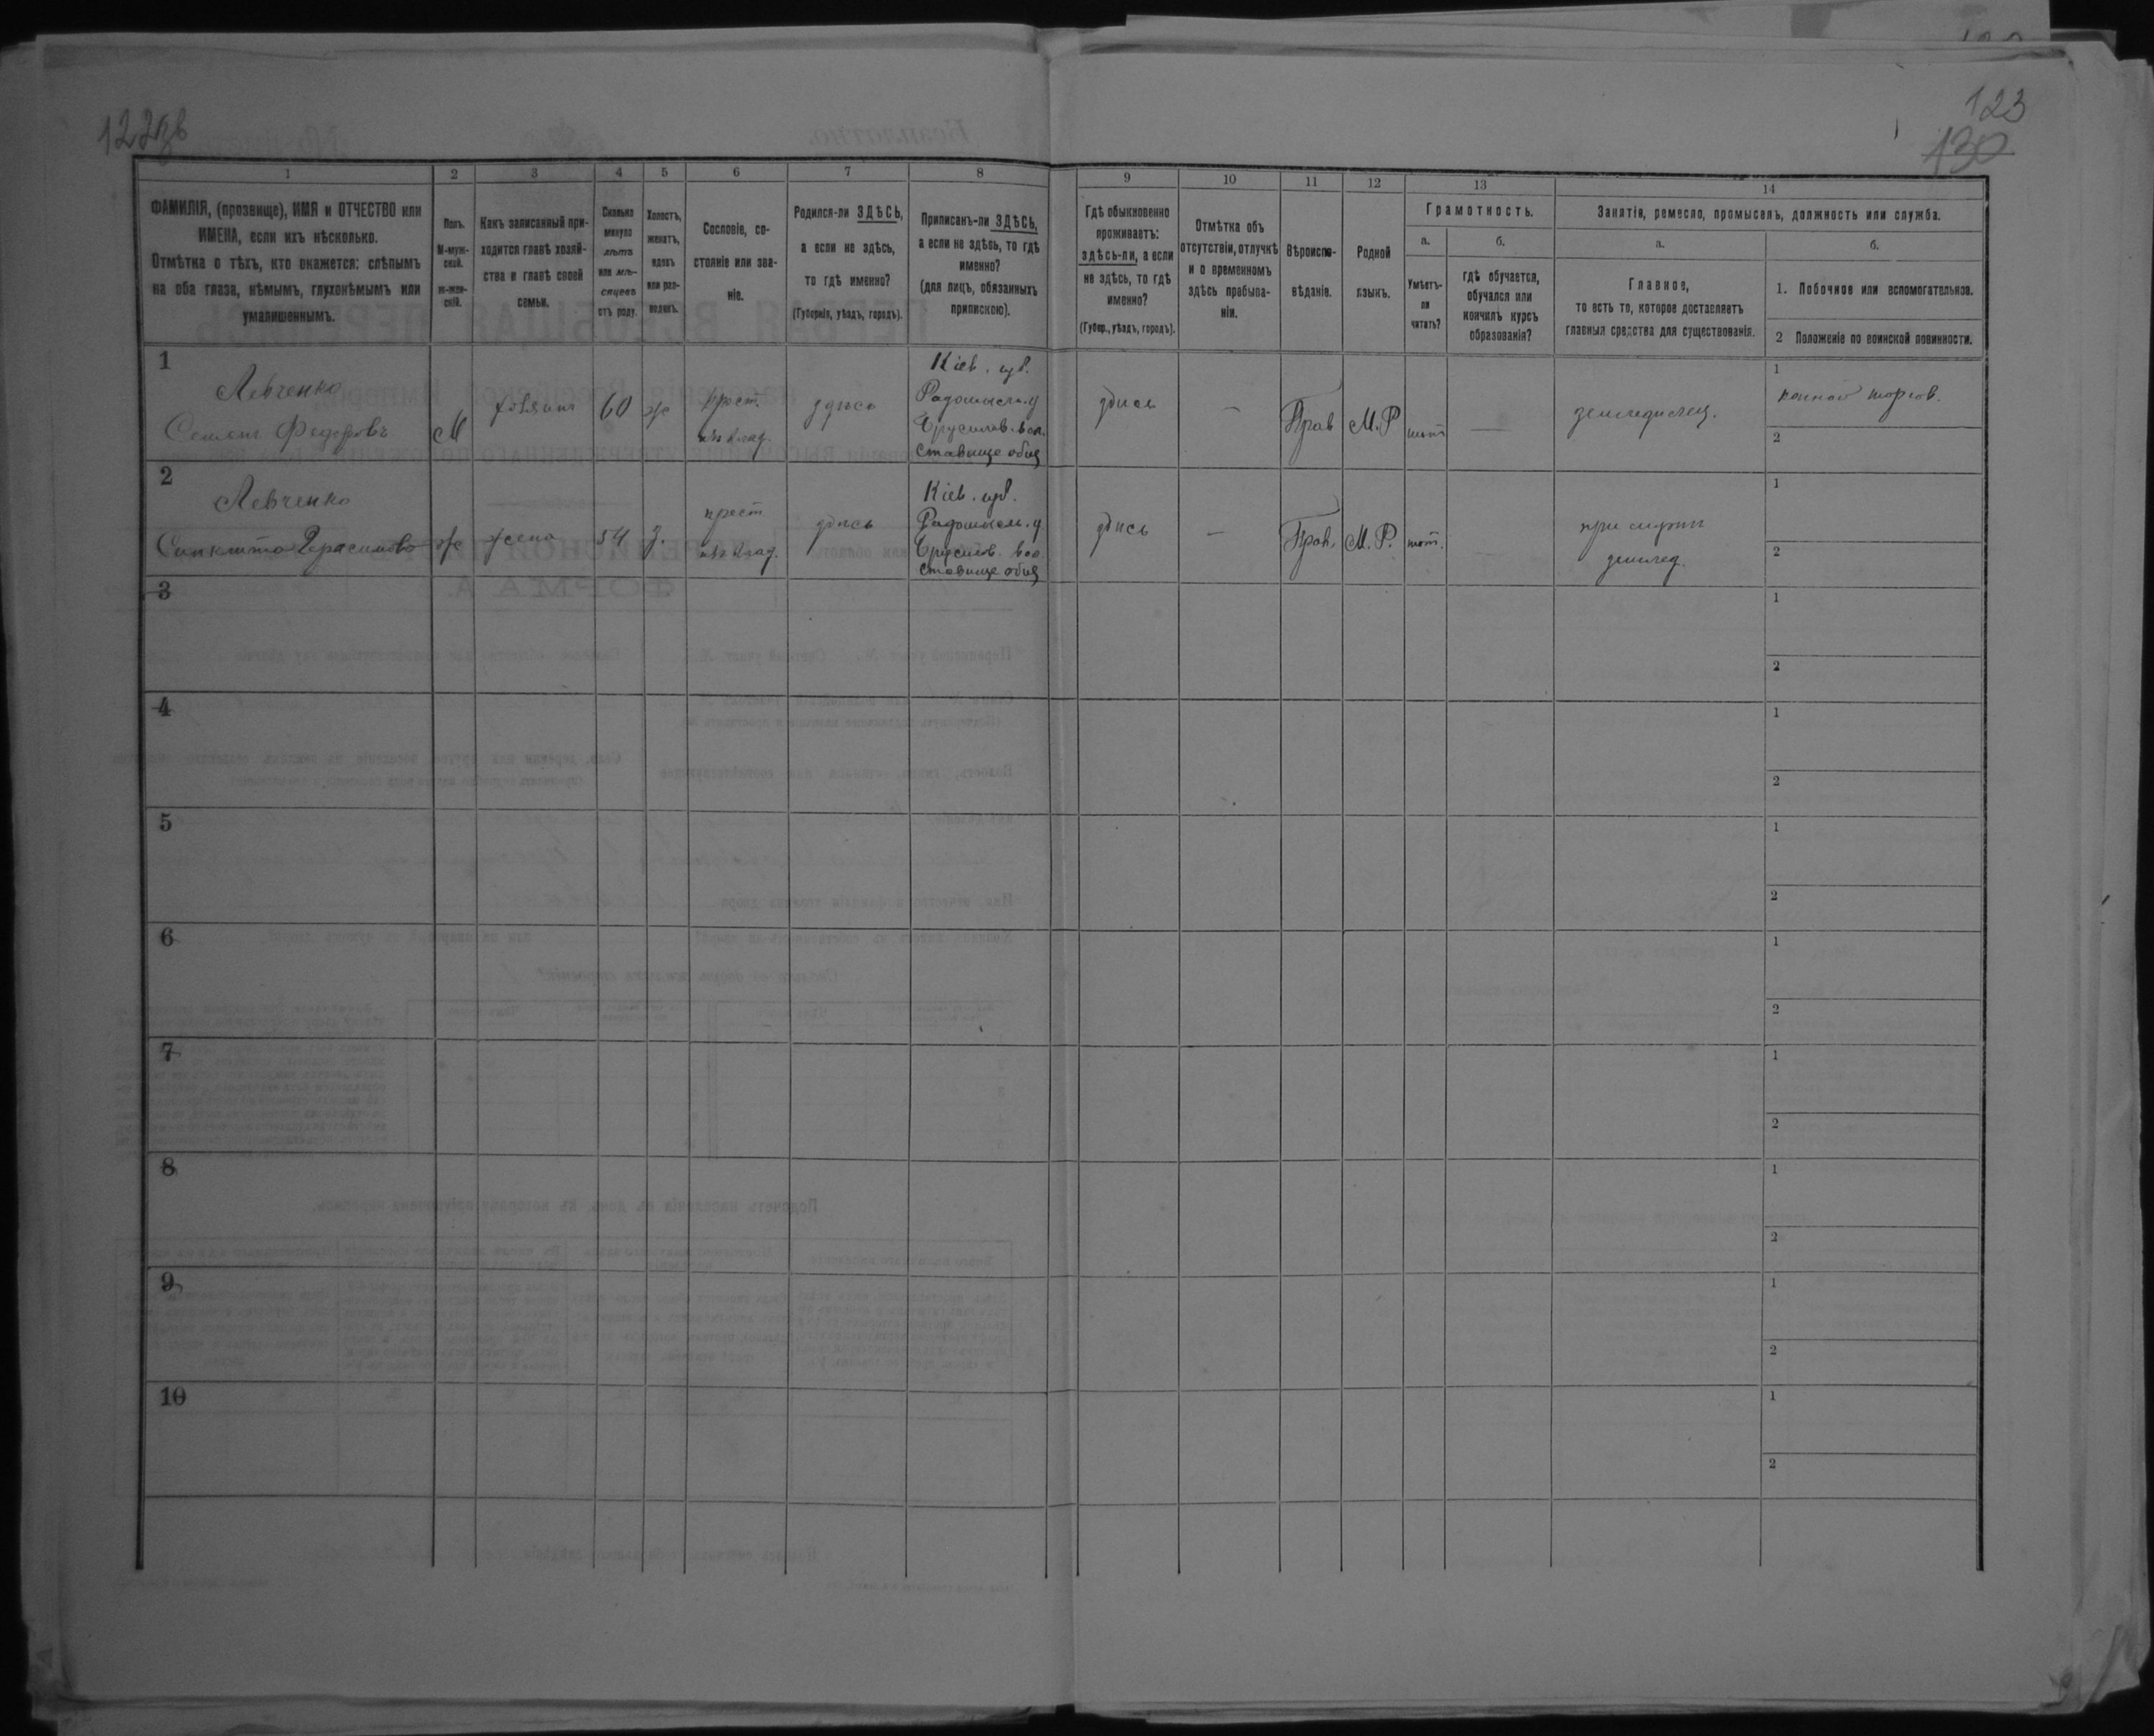 122зв
123
130
1
2
3
4
5
6
7
8
9
10
11
12
13
14
ФАМИЛІЯ, (прозвище), ИМЯ и ОТЧЕСТВО или
ИМЕНА, если ихъ нѣсколько.
Отмѣтка о тѣхъ, кто окажется: слѣпымъ
на оба глаза, нѣмымъ, глухонѣмымъ или
умалишеннымъ.
Полъ.
М-муж-
ской.
ж-жен-
скій.
Какъ записанный при-
ходится главѣ хозяй-
ства и главѣ своей
семьи.
Сколько
минуло
лѣтъ
или мѣ-
сяцевъ
отъ роду.
Холостъ,
женатъ,
вдовъ
или раз-
веденъ.
Сословіе, со-
стояніе или зва-
ніе.
Родился-ли ЗДѢСЬ,
а если не здѣсь,
то гдѣ именно?
(Губернія, уѣздъ, городъ).
Приписанъ-ли ЗДѢСЬ,
а если не здѣсь, то гдѣ
именно?
(для лицъ, обязанныхъ
припискою).
Гдѣ обыкновенно
проживаетъ:
здѣсь-ли, а если
не здѣсь, то гдѣ
именно?
(Губер., уѣздъ, городъ).
Отмѣтка объ
отсутствіи, отлучкѣ
и о временномъ
здѣсь пребыва-
ніи.
Вѣроиспо-
вѣданіе.
Родной
языкъ.
Грамотность.
а.
б.
Умѣетъ-
ли
читать?
гдѣ обучается,
обучался или
кончилъ курсъ
образованія?
Занятіе, ремесло, промыселъ, должность или служба.
а.
б.
Главное,
то есть то, которое доставляетъ
главныя средства для существованія.
1. Побочное или вспомогательное.
2 Положеніе по воинской повинности.
1
Левченко
Семенъ Федоровъ
М
хозяинъ
60
ж
крест.
изъ влад.
здѣсь
Кіев. губ.
Радомысл. у
Брусилов. вол.
Ставище общ
здѣсь
—
Прав
М.Р
нѣт
—
земледѣлец.
1
2
2
Левченко
Герасимова
ж
жена
54
З.
крест
изъ влад.
здѣсь
Кіев. губ.
Радомысл. у
Брусилов. вол.
Ставище общ
здѣсь
—
Прав.
М.Р.
нѣт.
—
при мужѣ
землед.
1
2
3
1
2
4
1
2
5
1
2
6
1
2
7
1
2
8
1
2
9
1
2
10
1
2